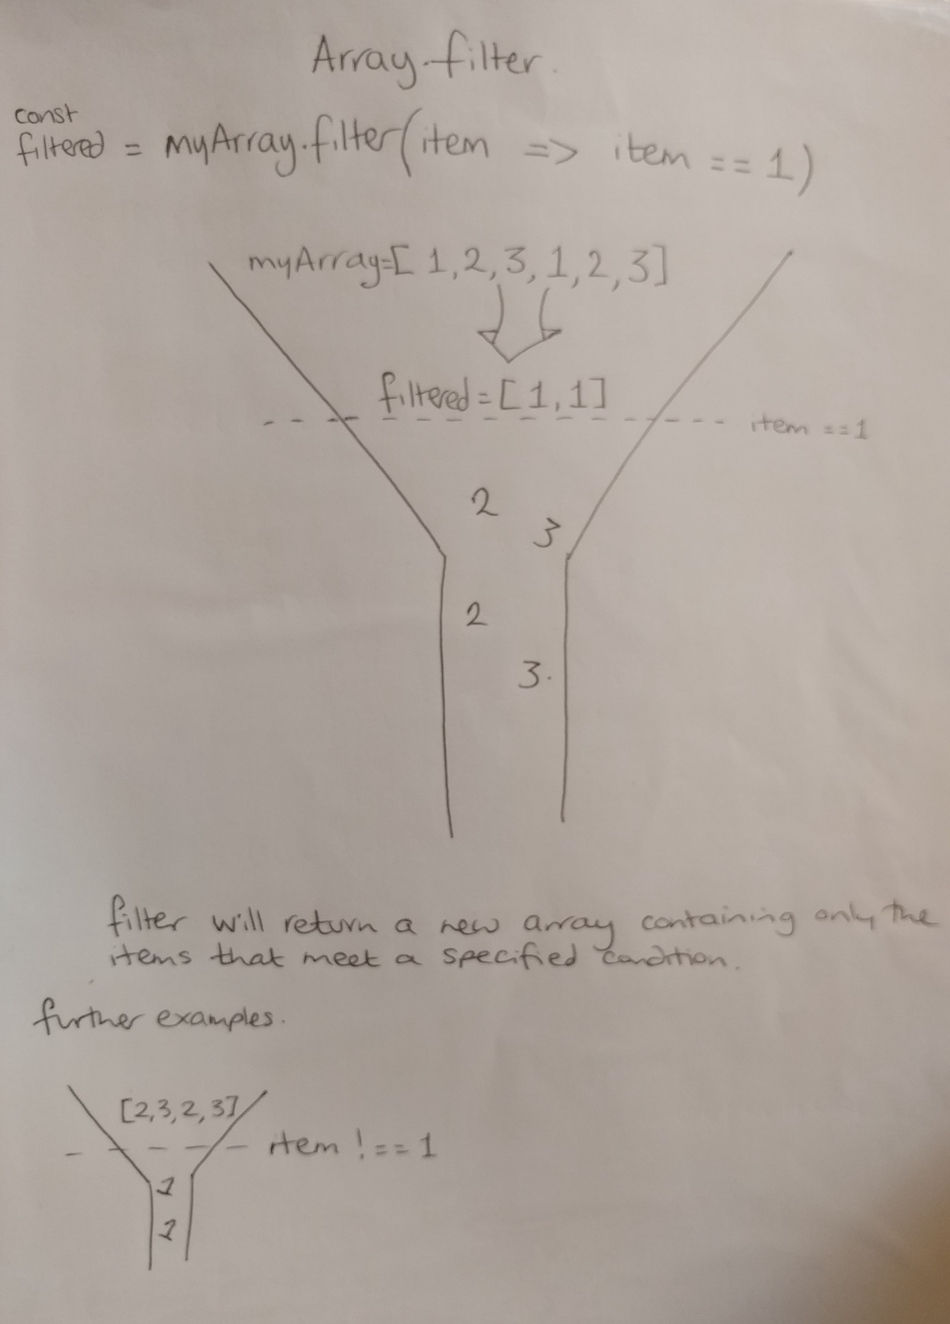 Array.filter.
const
filtered = myArray.filter(item => item == 1)
myArray=[1,2,3,1,2,3]
filtered=[1,1]
item ==1
2
3
2
3.
filter will return a new array containing only the
items that meet a specified condition.
further examples.
[2,3,2,3]
item !== 1
1
1